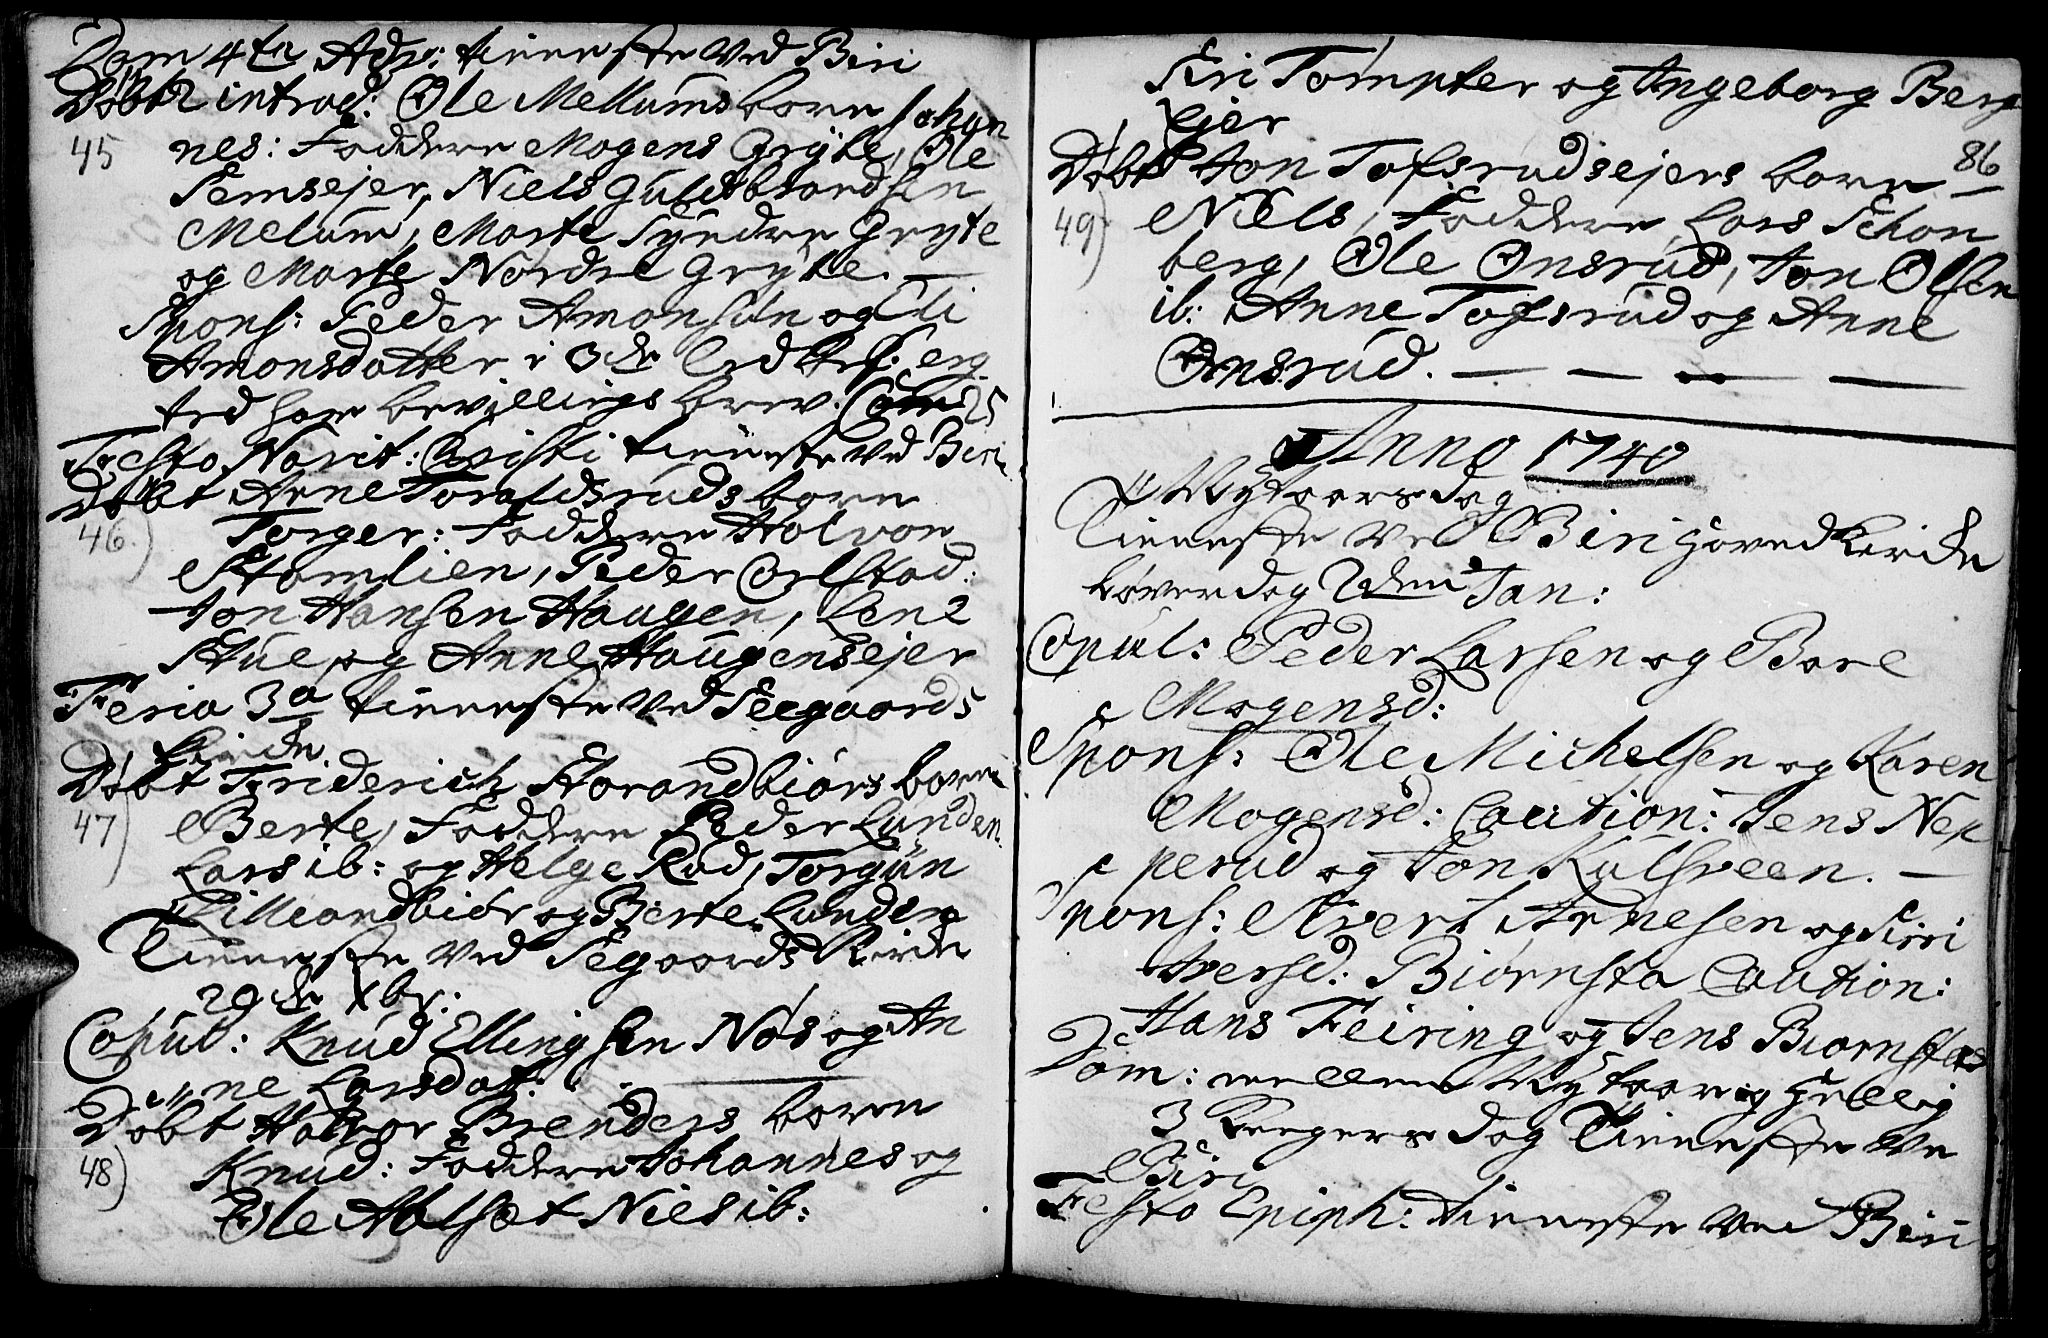 Dom 4ta Adv: tieneste ved Biri
Døbt introd: Ole Mellums barn Johan
45 nes: Faddere Mogens Gryte, Ole
Semsejer, Niels Guldbrandsen
Melum, Marte Syndre Gryte
og Marte Nordre Gryte. —
Spons: Peder Amonsen og Eli
Amonsdatter i 3de Led
bevillings brev. 25
Festo Nativit: Christi tieneste ved Biri
Døbt Arne Toraldsruds barn
46.) Torger: Faddere Halvor
Stomlien, Peder Onlstad:
Jon Hansen Haugen, Lene
Stue og Anne Haugensejer
Feria 3a tieneste ved Seegaards
Kirche
Døbt Friderich Strandbiørs barn
47) Berte, Faddere Peder Lunden
Lars ib: og Helge Rud, Torgun
Lilleandbiør og Berte Lunden
Tieneste ved Segaards Kirche
29de Xbr:
Copul: Knud Ellingsen Nøs og An
ne Larsdat:
Døbt Halvor Brenders barn
48) Knud: Faddere Johannes og
Ole Alset Niels ib:
Siri Tømpter og Ingeborg Berg
ejer
86
Døbt Jon Tofsrudsejers barn
49) Niels, Faddere Lars Schon
berg, Ole Onsrud, Jon Olsen
ib: Anne Tofsrud og Anne
Onsrud. — — — —
Anno 1740
Nytaarsdag
Tieneste ved Biri Hovedkirche
Løverdag 2den Jan:
Copul: Peder Larsen og Bare
Mogensd:
Spons: Ole Michelsen og Karen
Mogensd: Caution: Jens Nep
perud og Jon Kulsveen. —
Spons: Sivert Arnesen og Sirri
Iversd: Biørnsta Caution:
Hans Feiring og Jens Biørnstad
Dom: mellem Nytaar og Hellig
3 Kongers dag Tieneste ve
Biri
Festo Epiph: tieneste ved Biri